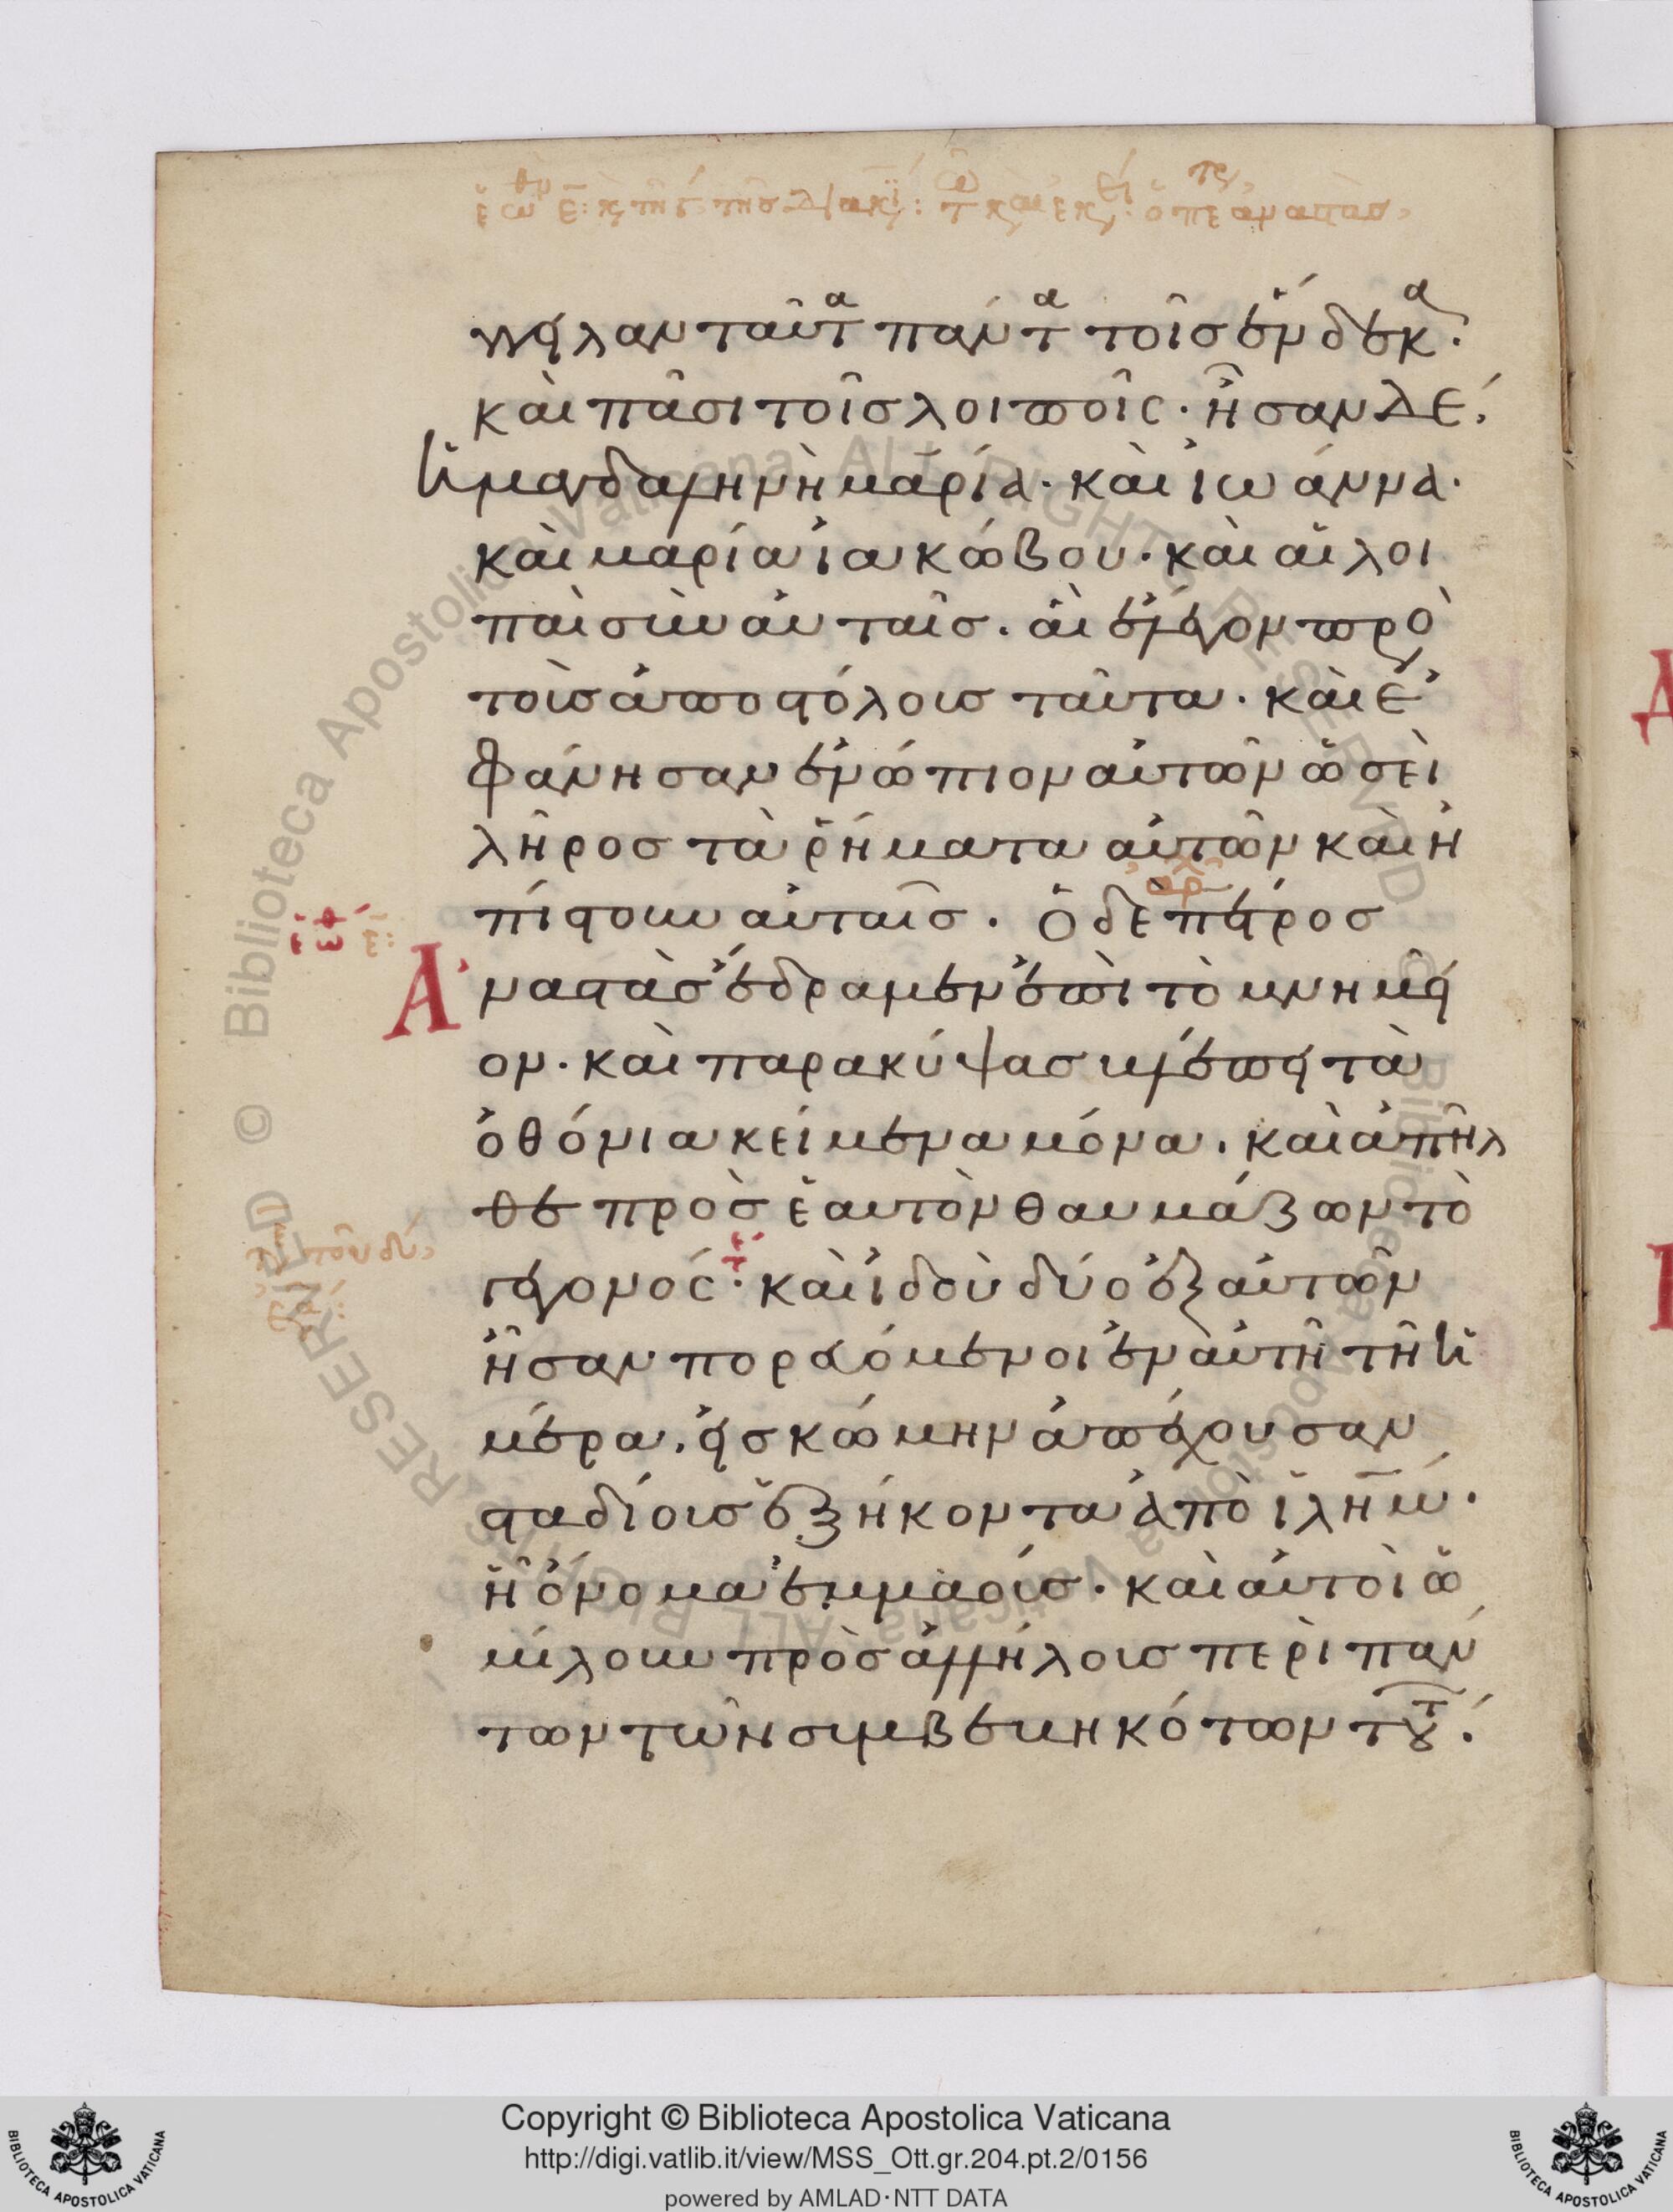 γγειλαν ταῦτα πάντα τοῖς ἕνδεκα.
καὶ πᾶσι τοῖς λοιποῖς· ἦσαν δέ,
ἡ μαγδαληνὴ μαρία· καὶ ἰωάννα·
καὶ μαρία ἰακώβου· καὶ αἱ λοι
παὶ σὺν αὐταῖς. αἳ ἔλεγον πρὸ
τοὺς ἀποστόλους ταῦτα· καὶ ἐ
φάνησαν ἐνώπιον αὐτῶν ὡσεὶ
λῆρος τὰ ῥήματα αὐτῶν καὶ ἠ
πίστουν αὐταῖς. Ὁ δὲ πέτρος
Ἀναστὰς ἔδραμεν ἐπὶ τὸ μνημεῖ
ον· καὶ παρακύψας βλέπει τὰ
ὀθόνια κείμενα μόνα. καὶ ἀπῆλ
θε πρὸς ἑαυτὸν θαυμάζων τὸ
γεγονός· καὶ ἰδοὺ δύο ἐξ αὐτῶν
ἦσαν πορευόμενοι ἐν αὐτῇ τῇ ἡ
μέρα. εἰς κώμην ἀπέχουσαν
σταδίους ἑξήκοντα ἀπὸ ἱλημ·
ἧ ὄνομα ἐμμαούς· καὶ αὐτοὶ ὡ
μίλουν πρὸς ἀλλήλους περὶ πάν
των τῶν συμβεβηκότων τούτ.
Copyright © Biblioteca Apostolica Vaticana
http://digi.vatlib.it/view/MSS_Ott.gr.204.pt.2/0156
powered by AMLAD·NTT DATA
BIBLIOTECA APOSTOLICA VATICANA
BIBLIOTECA APOSTOLICA VATICANA